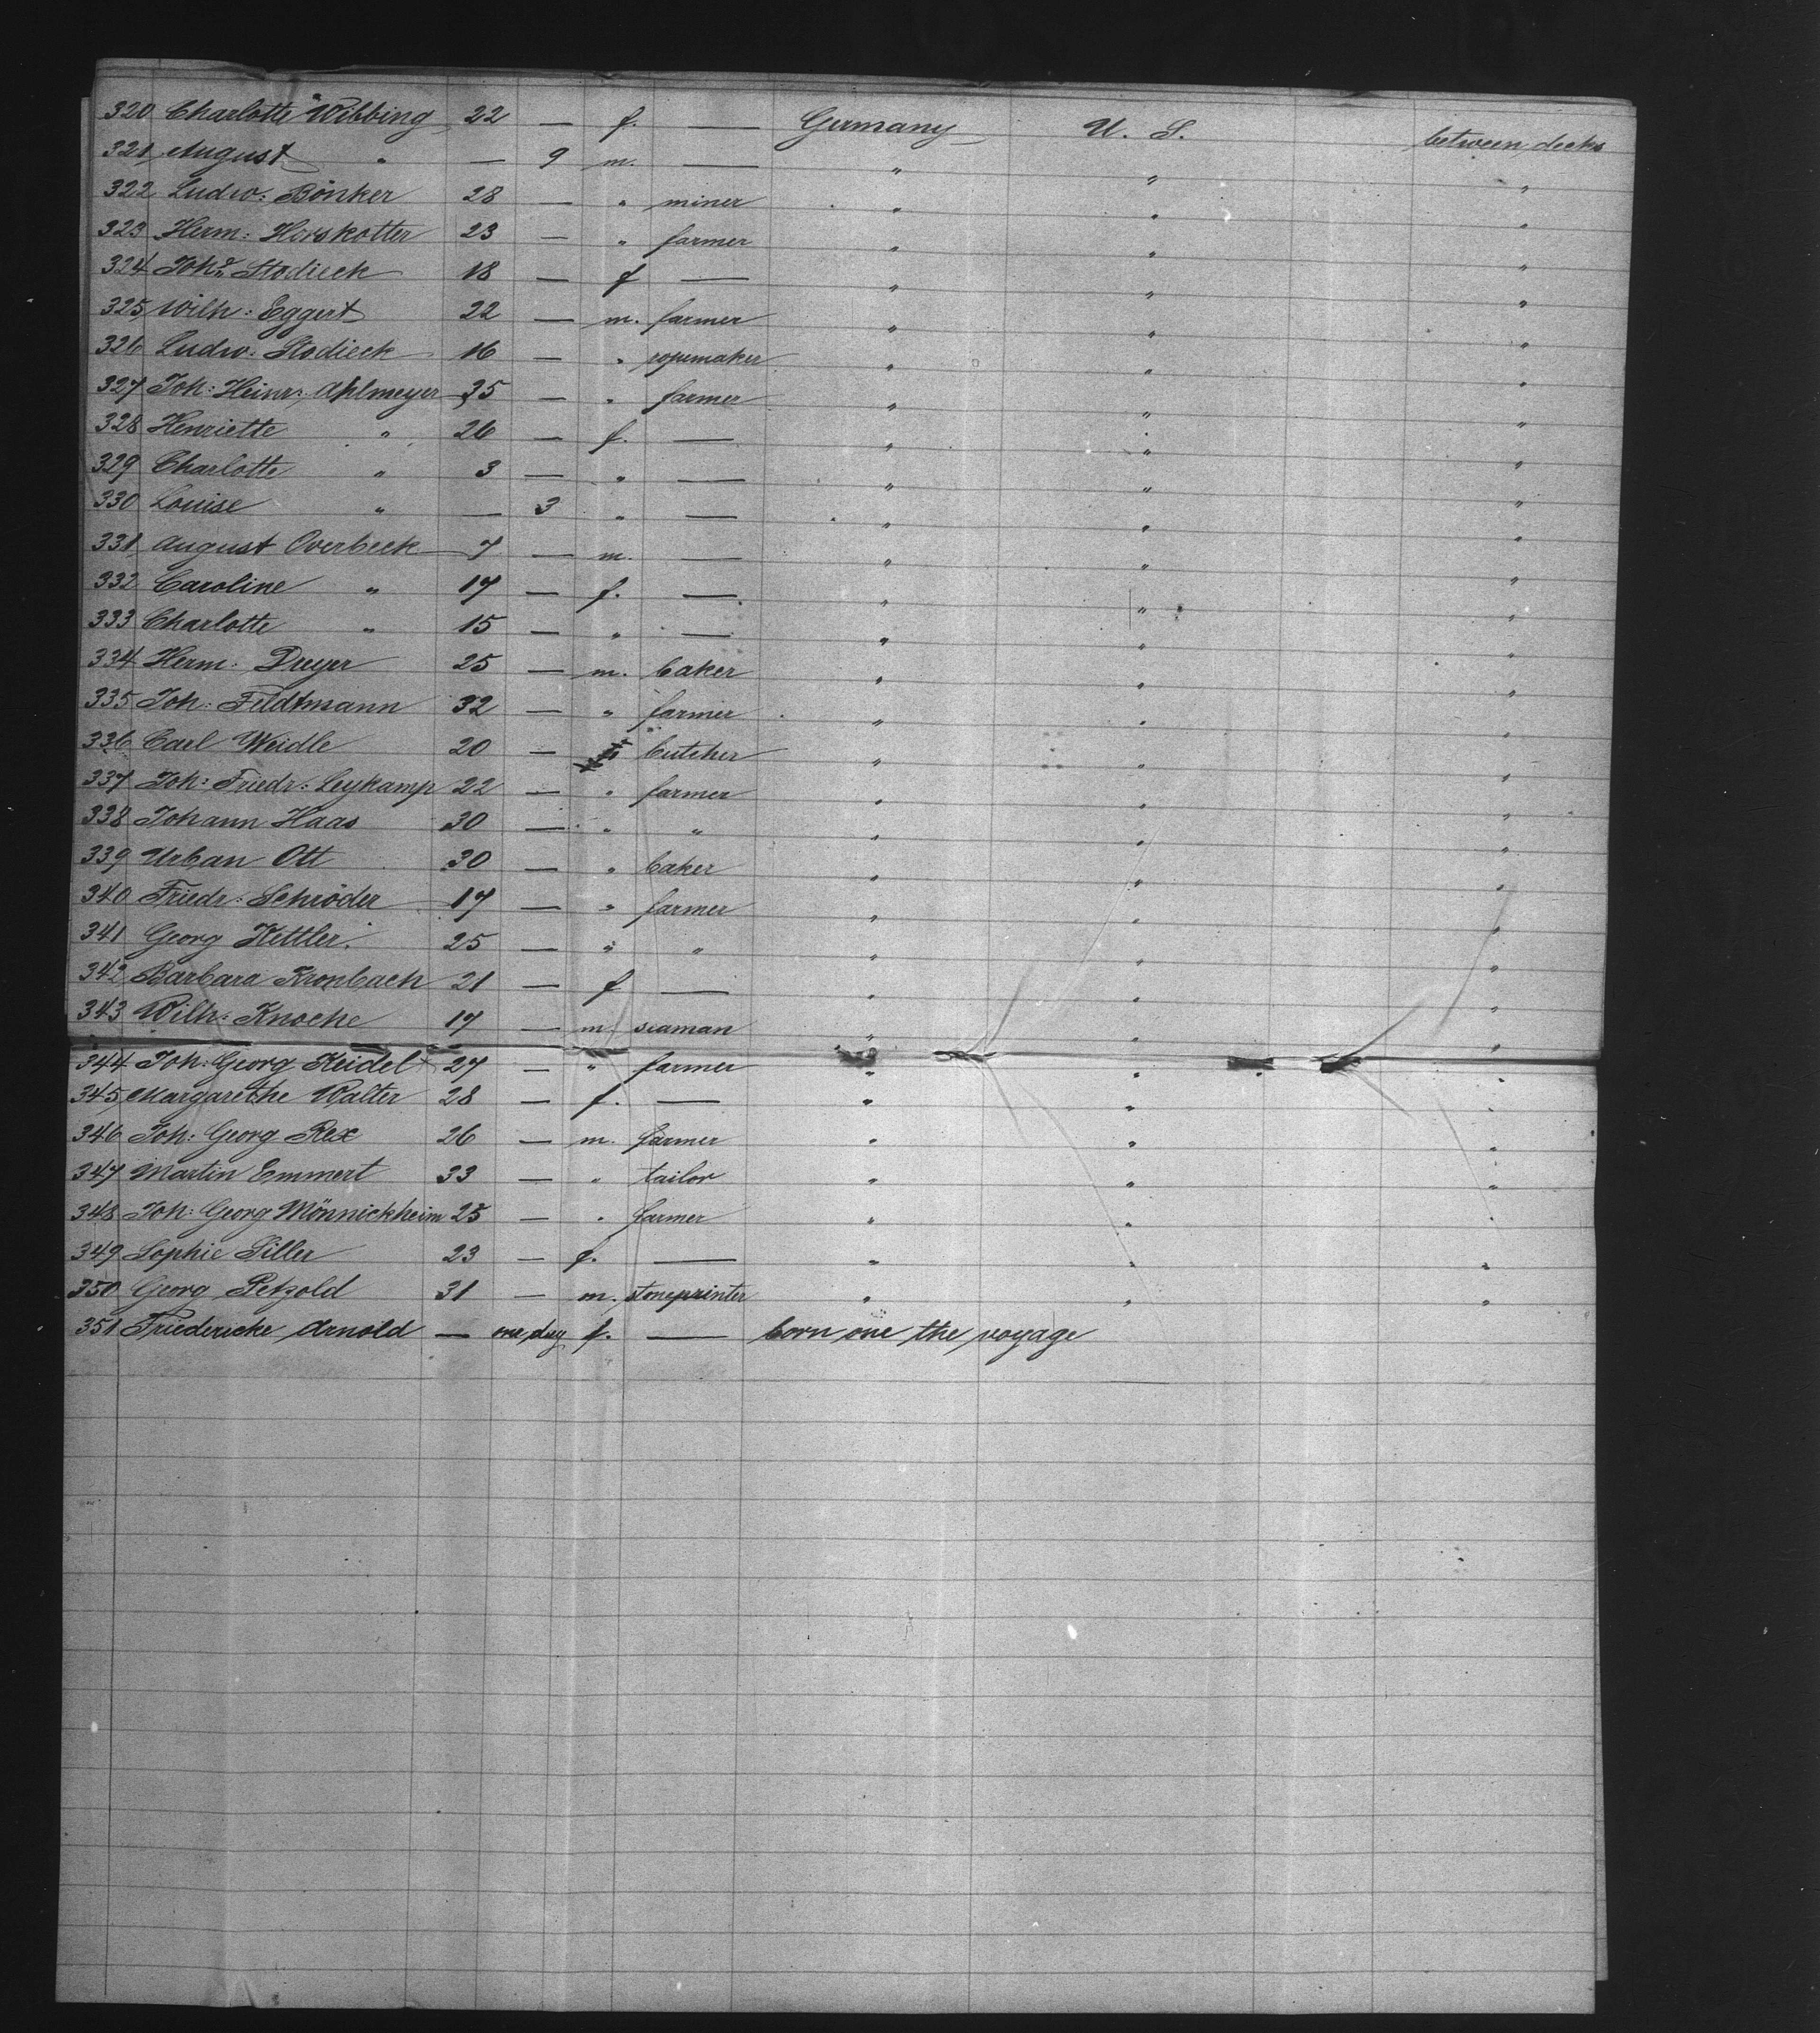 320 Charlotte Wibbing 22 — f. — Germany U. S. between decks
321 August " — 9 m. — " " "
322 Ludw: Bönker 28 — " miner " " "
323 Herm: Horskotter 23 — " farmer " " "
324 Joh: Stodieck 18 — f — " " "
325 Wilh: Eggert 22 — m. farmer " " "
326 Ludw: Stodieck 16 — " ropemaker " " "
327 Joh: Heinr: Ahlmeyer 35 — " farmer " " "
328 Henriette " 26 — f. — " " "
329 Charlotte " 3 — " — " " "
330 Louise " — 3 " — " " "
331 August Overbeck 7 — m. — " " "
332 Caroline " 17 — f. — " " "
333 Charlotte " 15 — " — " " "
334 Herm. Dreyer 25 — m. baker " " "
335 Joh: Feldtmann 32 — " farmer " " "
336 Carl Weidle 20 — butcher " " "
337 Joh: Friedr: Leykamp 22 — " farmer " " "
338 Johann Haas 30 — " " " " "
339 Urban Ott 30 — " baker " " "
340 Friedr: Schröder 17 — " farmer " " "
341 Georg Kettler 25 — " " " " "
342 Barbara Kronbach 21 — f — " " "
343 Wilh: Knoche 17 — m. seaman " " "
344 Joh: Georg Keidel 27 — " farmer " " "
345 Margarethe Walter 28 — f. — " " "
346 Joh: Georg Rex 26 — m. farmer " " "
347 Martin Emmert 33 — " tailor " " "
348 Joh: Georg Mönnickheim 25 — " farmer " " "
349 Sophie Siller 23 — f. — " " "
350 Georg Petzold 31 — m. stoneprinter " " "
351 Friedericke Arnold — one day f. — born one the voyage